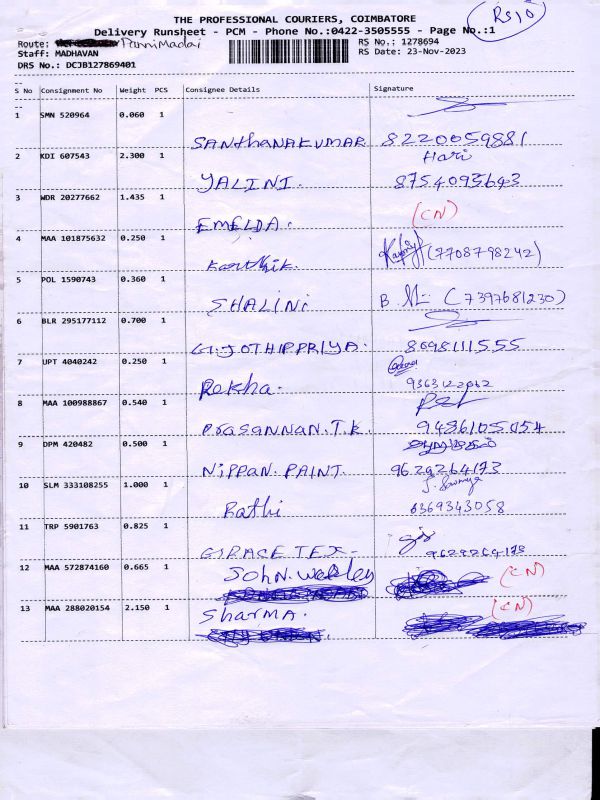 RS 10
THE PROFESSIONAL COURIERS, COIMBATORE
Delivery Runsheet - PCM - Phone No.:0422-3505555 - Page No.:1
Route: PanniMadai
RS No.: 1278694
Staff: MADHAVAN
RS Date: 23-Nov-2023
DRS No.: DCJB127869401
S No Consignment No Weight PCS Consignee Details Signature
1 SMN 520964 0.060 1
SANthANAKUMAR 8220059881
2 KDI 607543 2.300 1 Hari
YALINI. 8754093643
3 WDR 20277662 1.435 1 (CN)
EMELDA.
4 MAA 101875632 0.250 1 (7708798242)
Karthik.
5 POL 1590743 0.360 1 B (7397681230)
SHALINi
6 BLR 295177112 0.700 1
G.JOTHIPPRIYA. 8098111555
7 UPT 4040242 0.250 1
Rekha. 9363122062
8 MAA 100988867 0.540 1
PrasANNAN.T.K. 9486105054
9 DPM 420482 0.500 1
NiPPAN. PAINT. 9629264173
10 SLM 333108255 1.000 1 J. Sowmya
Rathi 6369343058
11 TRP 5901763 0.825 1
GRACE TEX- 9629264173
12 MAA 572874160 0.665 1 JOHN. Wesley (CN)
13 MAA 288020154 2.150 1 SharMA. (CN)